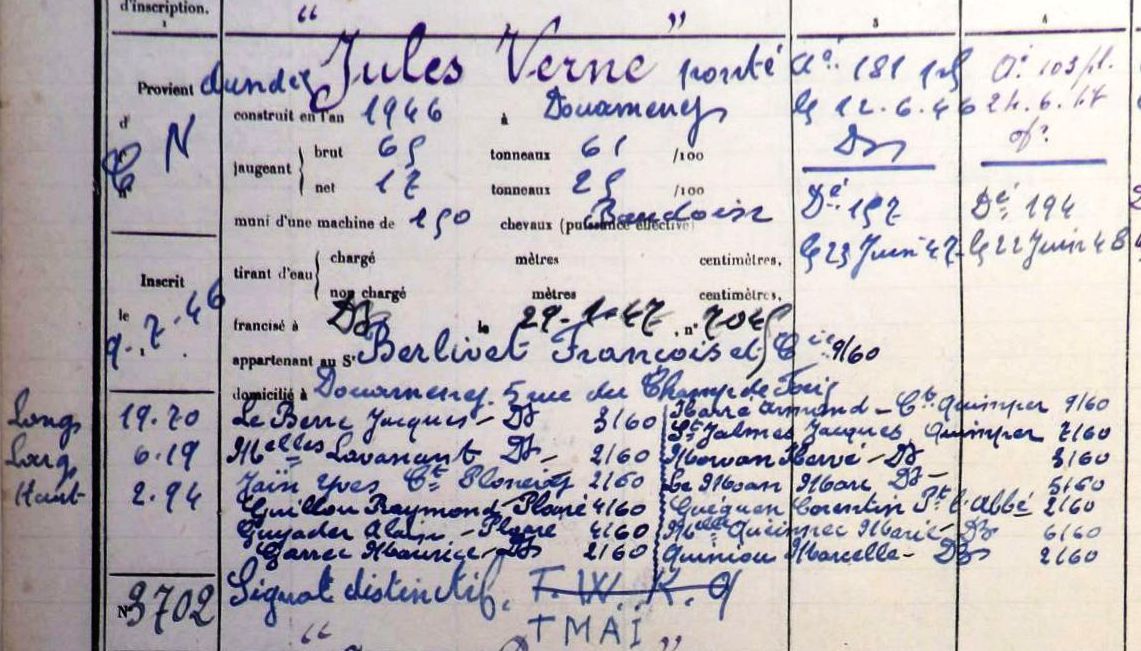 d'inscription.
1
3
4
" Jules Verne "
Provient dundee ponté
construit en l'an 1946 à Douarnenez
d' N
jaugeant
brut 65 tonneaux 61 /100
net 17 tonneaux 25 /100
muni d'une machine de 150 chevaux (puissance effective) Baudoin
tirant d'eau
chargé mètres centimètres,
non chargé mètres centimètres,
Inscrit
le 9.7.46
francisé à Dz le 29-1-47, n° 7045
appartenant au Sr Berlivet François et Cie 9/60
domicilié à Douarnenez. 5 rue du Champ de Foire
Long 19.70
Larg 6.19
Haut 2.94
Le Berre Jacques - Dz 3/60
Melles Lavanant Dz - 2/60
Jaïn Yves Ct Plonevez 2/60
Guillou Raymond - Ploaré 4/60
Guyader Alain - Ploaré 4/60
Garrec Maurice - Dz 2/60
Armand - Ct. Quimper 9/60
St Jalmes Jacques, Quimper 7/60
Morvan Hervé - Dz 3/60
Le Moan Marc Dz - 5/60
Guéguen Corentin Pt l'Abbé 2/60
Melle Queinnec Marie - Dz 6/60
Quiniou Marcelle - Dz 2/60
N° 3702
Signal distinctif. T.W.K.Q
TMAÏ
" "
At. 181
le 12.6.46
Dz
Dé 157
le 23 Juin 47
At 103 pl.
24.6.47
Dé 194
le 22 Juin 48